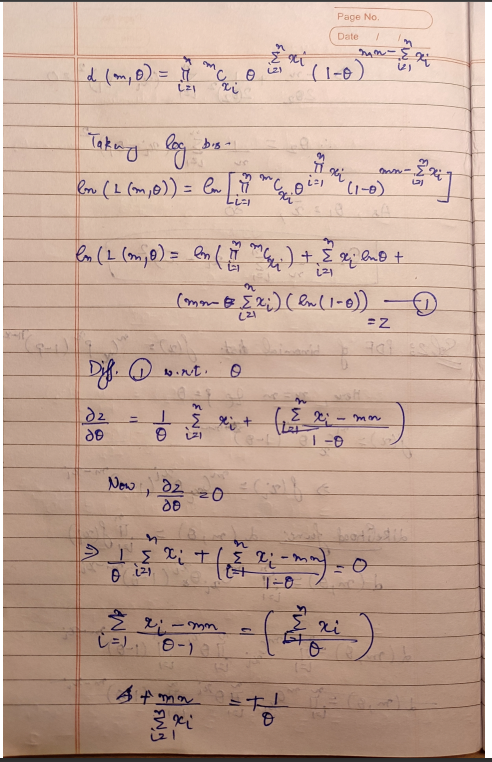 Page No.
Date / /
L(m,θ) = n∏i=1 ᵐC_xi θ^(n∑i=1 xi) (1-θ)^(mn - n∑i=1 xi)
Taking log b.s.
ln(L(m,θ)) = ln[n∏i=1 ᵐC_xi θ^(n∏i=1 xi) (1-θ)^(mn - n∑i=1 xi)]
ln(L(m,θ) = ln(n∏i=1 ᵐC_xi) + n∑i=1 xi lnθ +
(mn - n∑i=1 xi)(ln(1-θ)) — ①
= z
Diff. ① w.r.t. θ
∂z/∂θ = 1/θ n∑i=1 xi + (n∑i=1 xi - mn / 1-θ)
Now, ∂z/∂θ = 0
⇒ 1/θ n∑i=1 xi + (n∑i=1 xi - mn / 1-θ) = 0
n∑i=1 xi - mn / θ-1 = (n∑i=1 xi / θ)
+ mn / n∑i=1 xi = + 1/θ